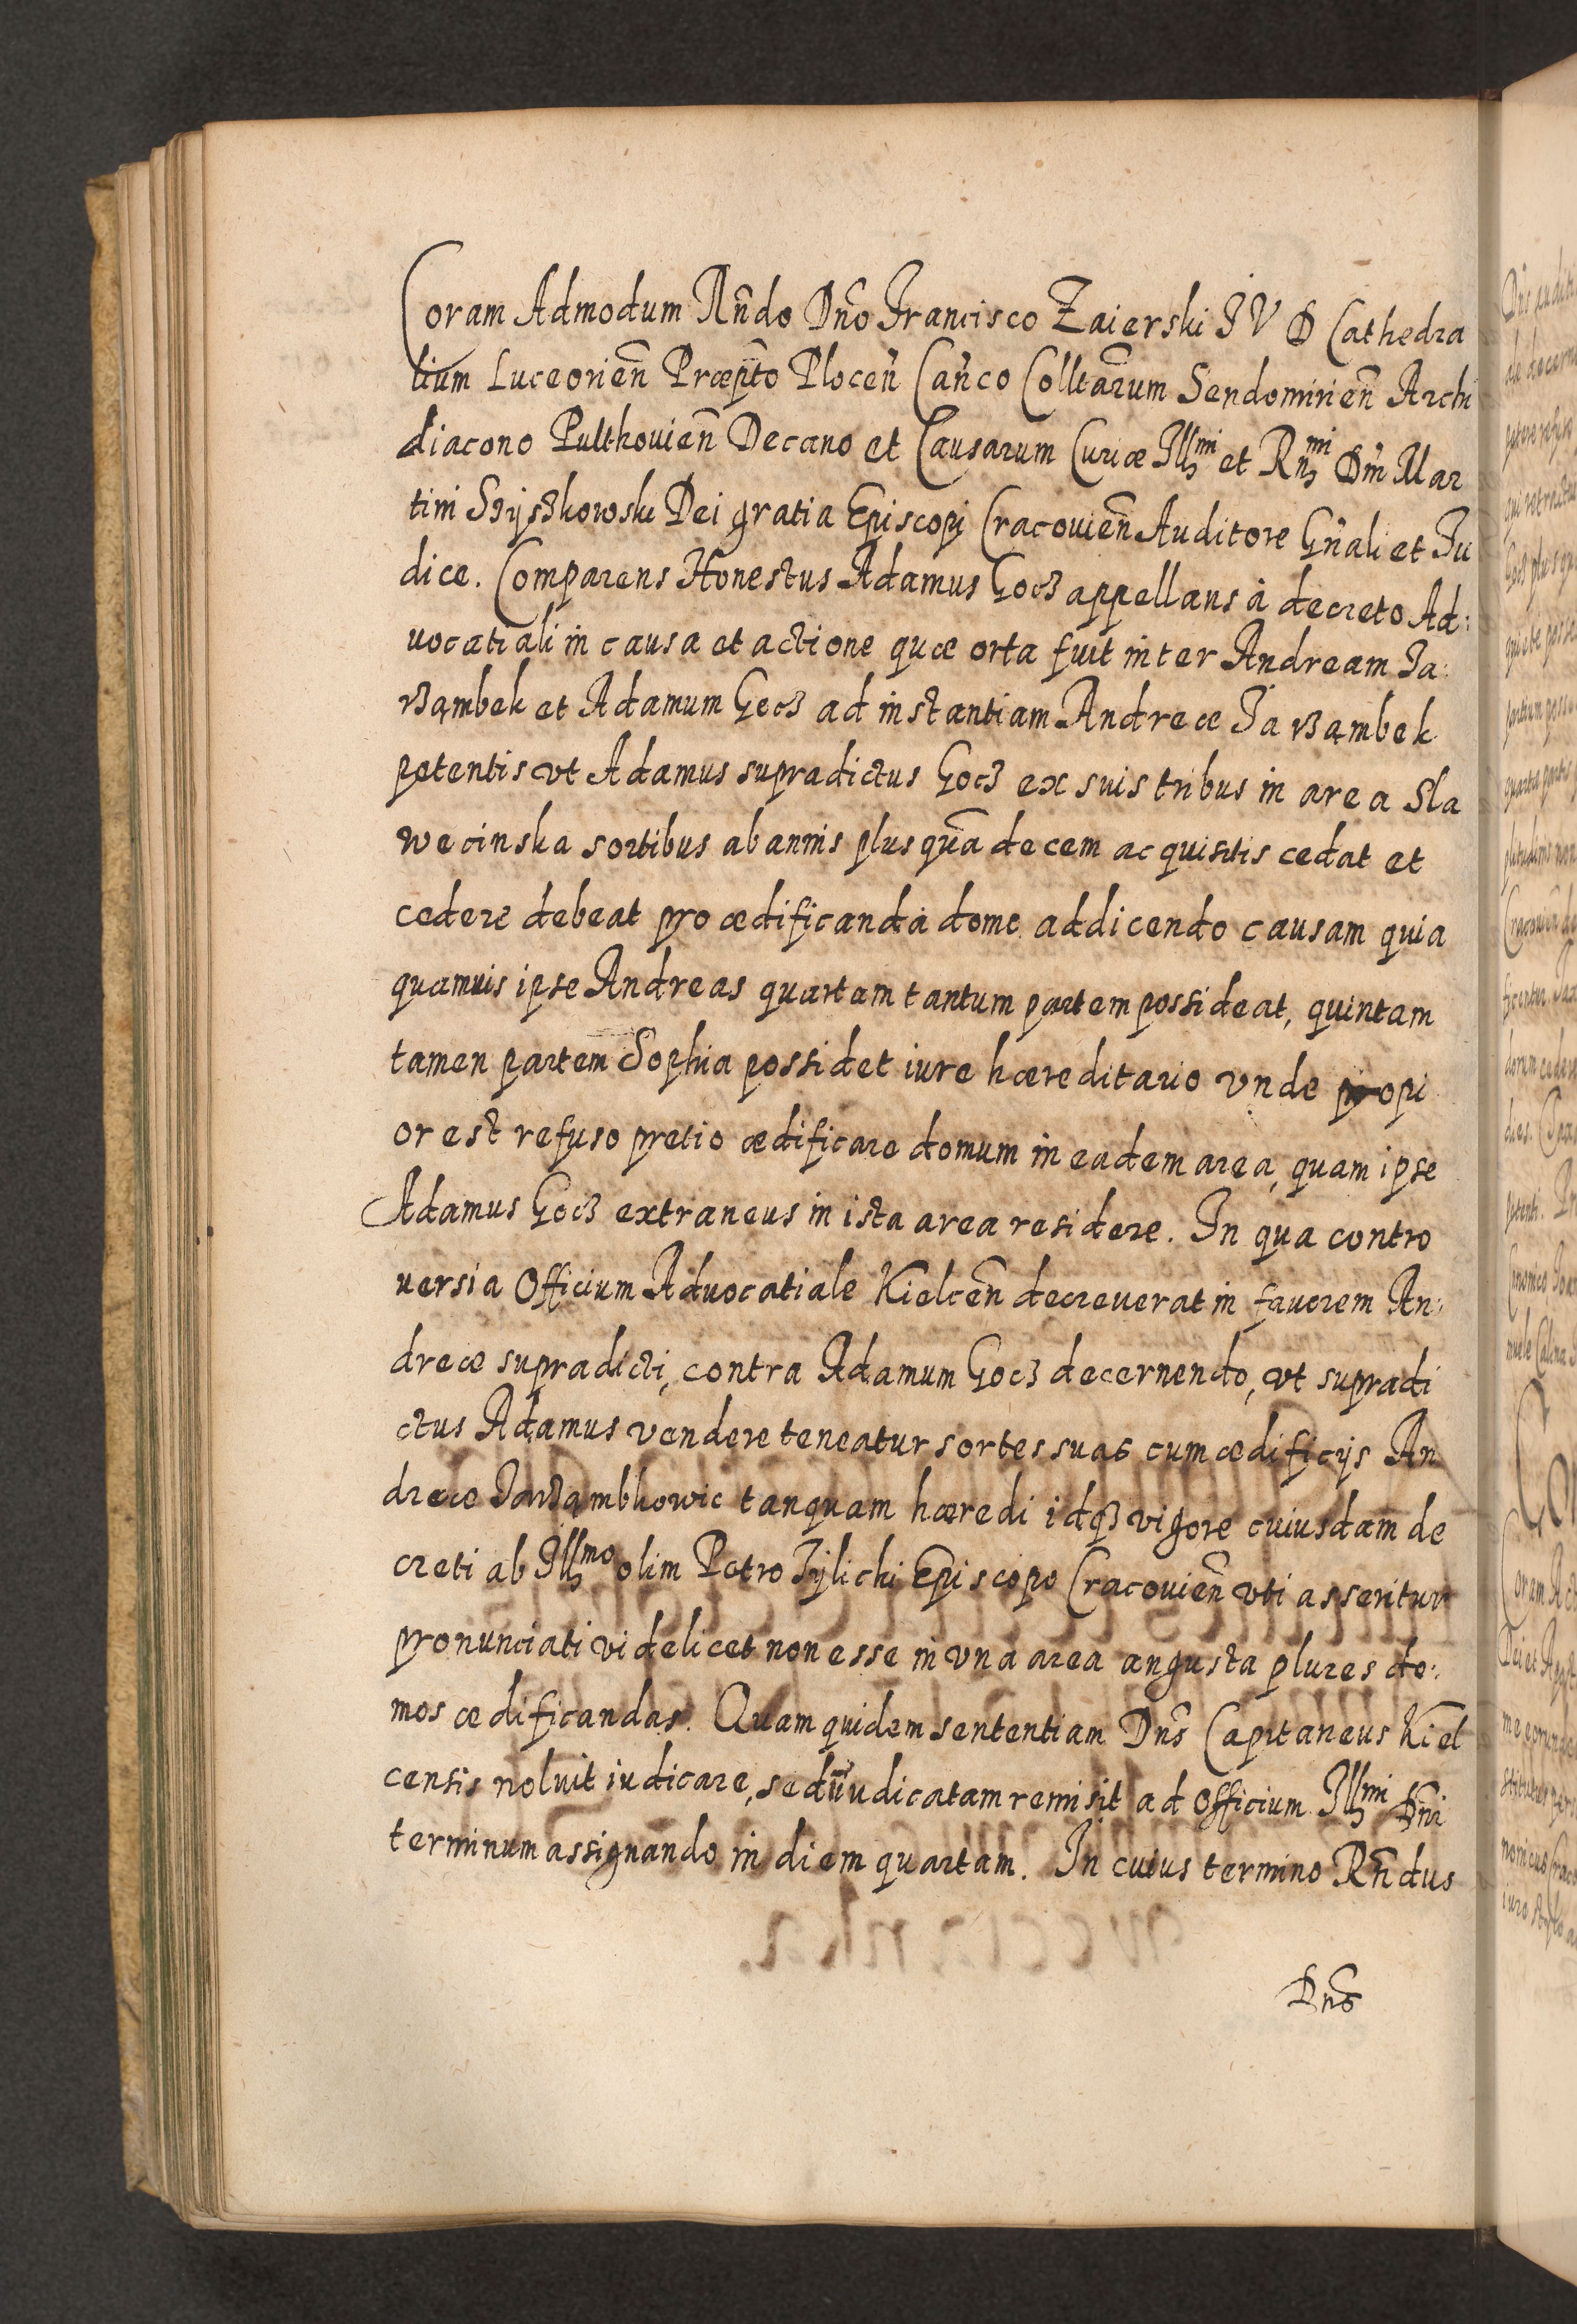 Coram Admodum Rñdo Dño Francisco Zaierski I V D Cathedra
lium Luceorieñ Præpto Ploceñ Cañco Colltarum Sendomirieñ Archi
diacono Pulthouieñ Decano et Causarum Curiæ Illmi et Rnmi Dñi Mar
tini Szyszkowski Dei gratia Episcopi Cracouieñ Auditore Gñali et Iu
dice. Comparens Honestus Adamus Gocz appellans à decreto Ad:
uocatiali in causa et actione quæ orta fuit inter Andream Ia:
rząmbek et Adamum Gocz ad instantiam Andreæ Iarząmbek
petentis vt Adamus supradictus Gocz ex suis tribus in area Sla
wecinska sortibus ab annis plus quã decem acquisitis cedat et
cedere debeat pro ædificanda domo addicendo causam quia
quamuis ipse Andreas quartam tantum partem possideat, quintam
tamen partem Sophia possidet iure hæreditario vnde propi
or est refuso pretio ædificare domum in eadem area, quam ipse
Adamus Gocz extraneus in ista area residere. In qua contro
uersia Officium Aduocatiale Kielceñ decreuerat in fauorem An:
dreæ supradicti, contra Adamum Gocz decernendo, vt supradi
ctus Adamus vendere teneatur sortes suas cum ædificijs An
dreæ Iarząmbkowic tanquam hæredi idqz vigore cuiusdam de
creti ab Illmo olim Petro Tylicki Episcopo Cracouieñ vti asseritur
pronunciati videlicet non esse in vna area angusta plures do:
mos ædificandas. Quam quidem sententiam Dñs Capitaneus Kiel
censis noluit iudicare, sed iudicatam remisit ad Officium Illmi Dñi
terminum assignando in diem quartam. In cuius termino Rñdus
Dñs